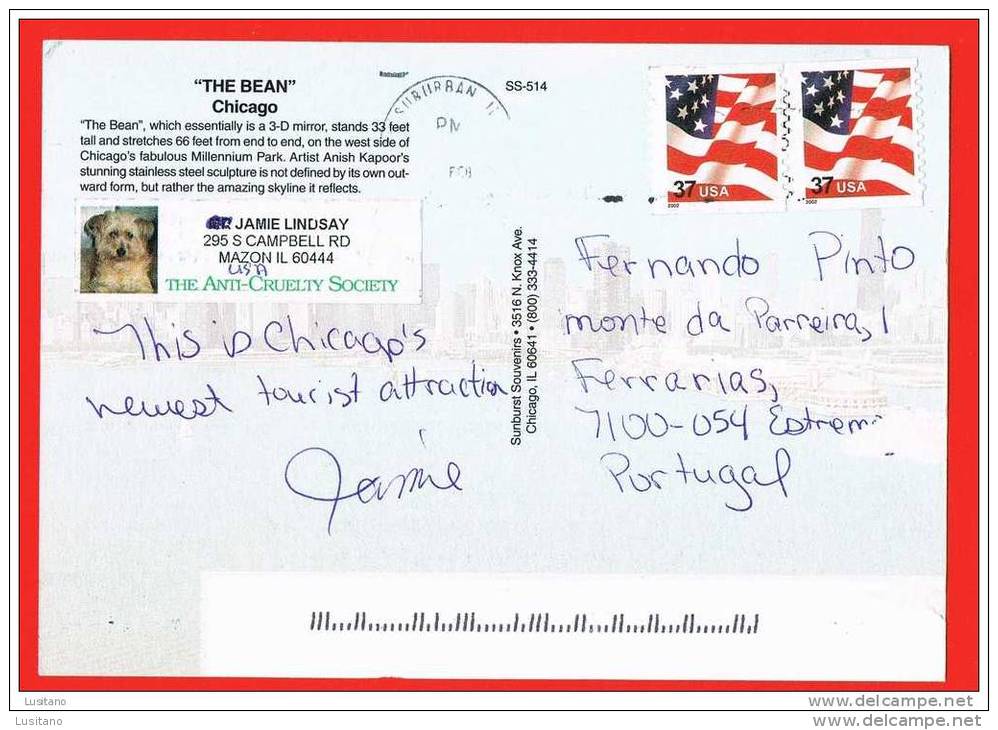 "THE BEAN"
Chicago
"The Bean", which essentially is a 3-D mirror, stands 33 feet
tall and stretches 66 feet from end to end, on the west side of
Chicago's fabulous Millennium Park. Artist Anish Kapoor's
stunning stainless steel sculpture is not defined by its own out-
ward form, but rather the amazing skyline it reflects.
SS-514
SUBURBAN
PM
FEB
37 USA
2002
37 USA
2002
JAMIE LINDSAY
295 S CAMPBELL RD
MAZON IL 60444
USA
THE ANTI-CRUELTY SOCIETY
This is Chicago's
newest tourist attraction
Jamie
Sunburst Souvenirs • 3516 N. Knox Ave.
Chicago, IL 60641 • (800) 333-4414
Fernando Pinto
monte da Parreira, 1
Ferrarias,
7100-054 Estrem
Portugal
Lusitano
delcampe.net
Lusitano
delcampe.net